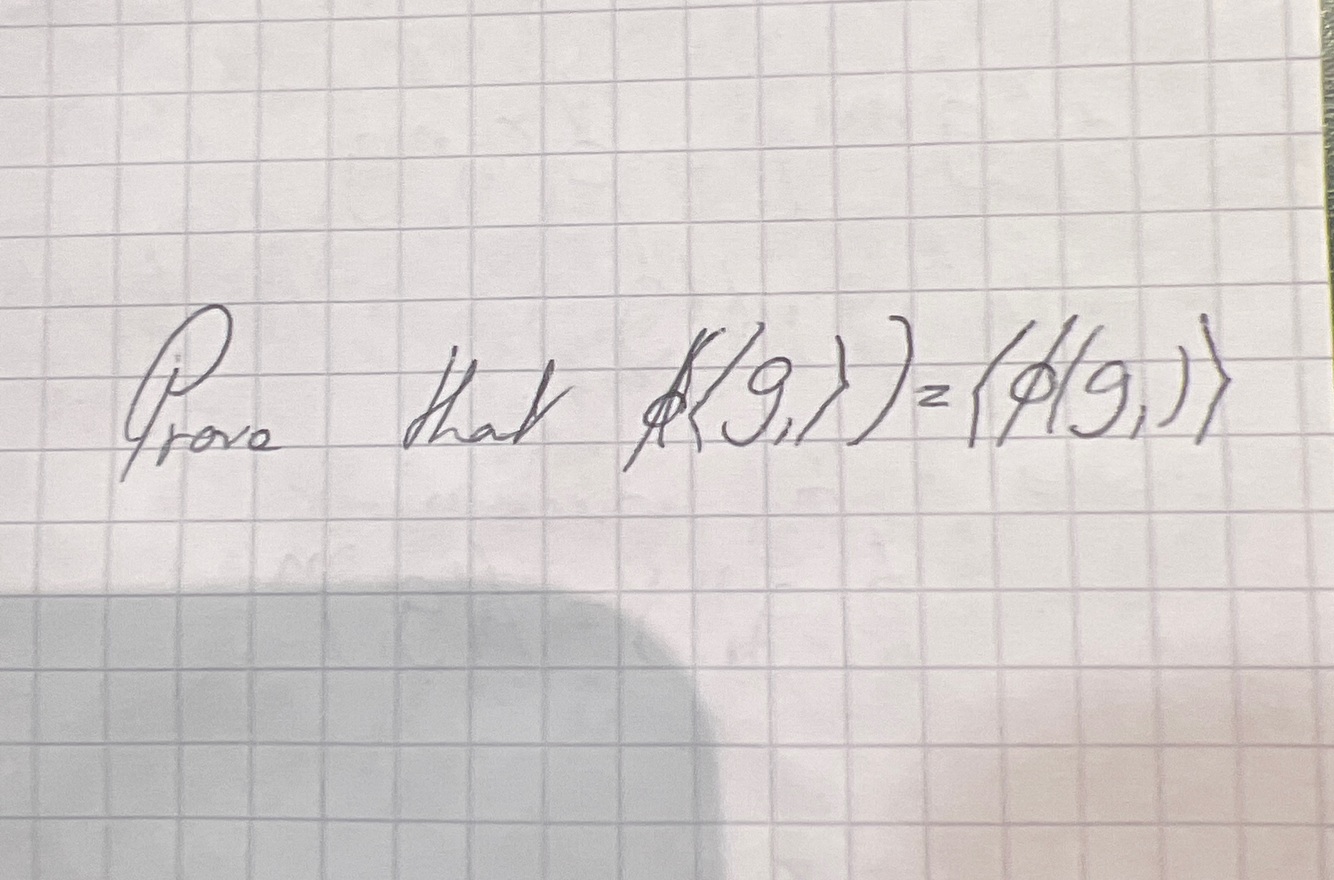 Prove that ϕ(⟨g₁⟩)=⟨ϕ(g₁)⟩